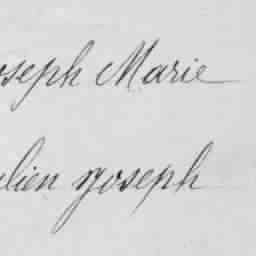 oseph Marie
ulien yoseph